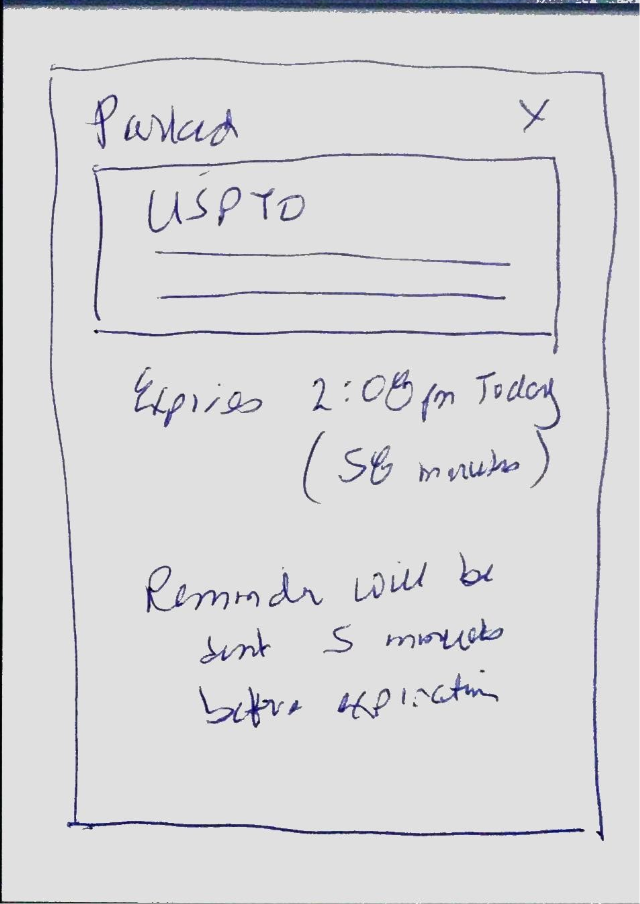 Parked X
USPTO
Expires 2:08 pm Today
(58 minutes)
Reminder will be
sent 5 minutes
before expiration